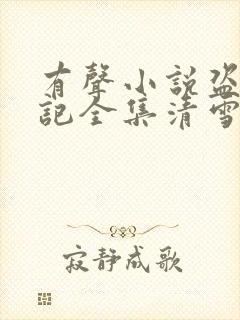 有聲小説盜
記全集清雪
寂静成歌